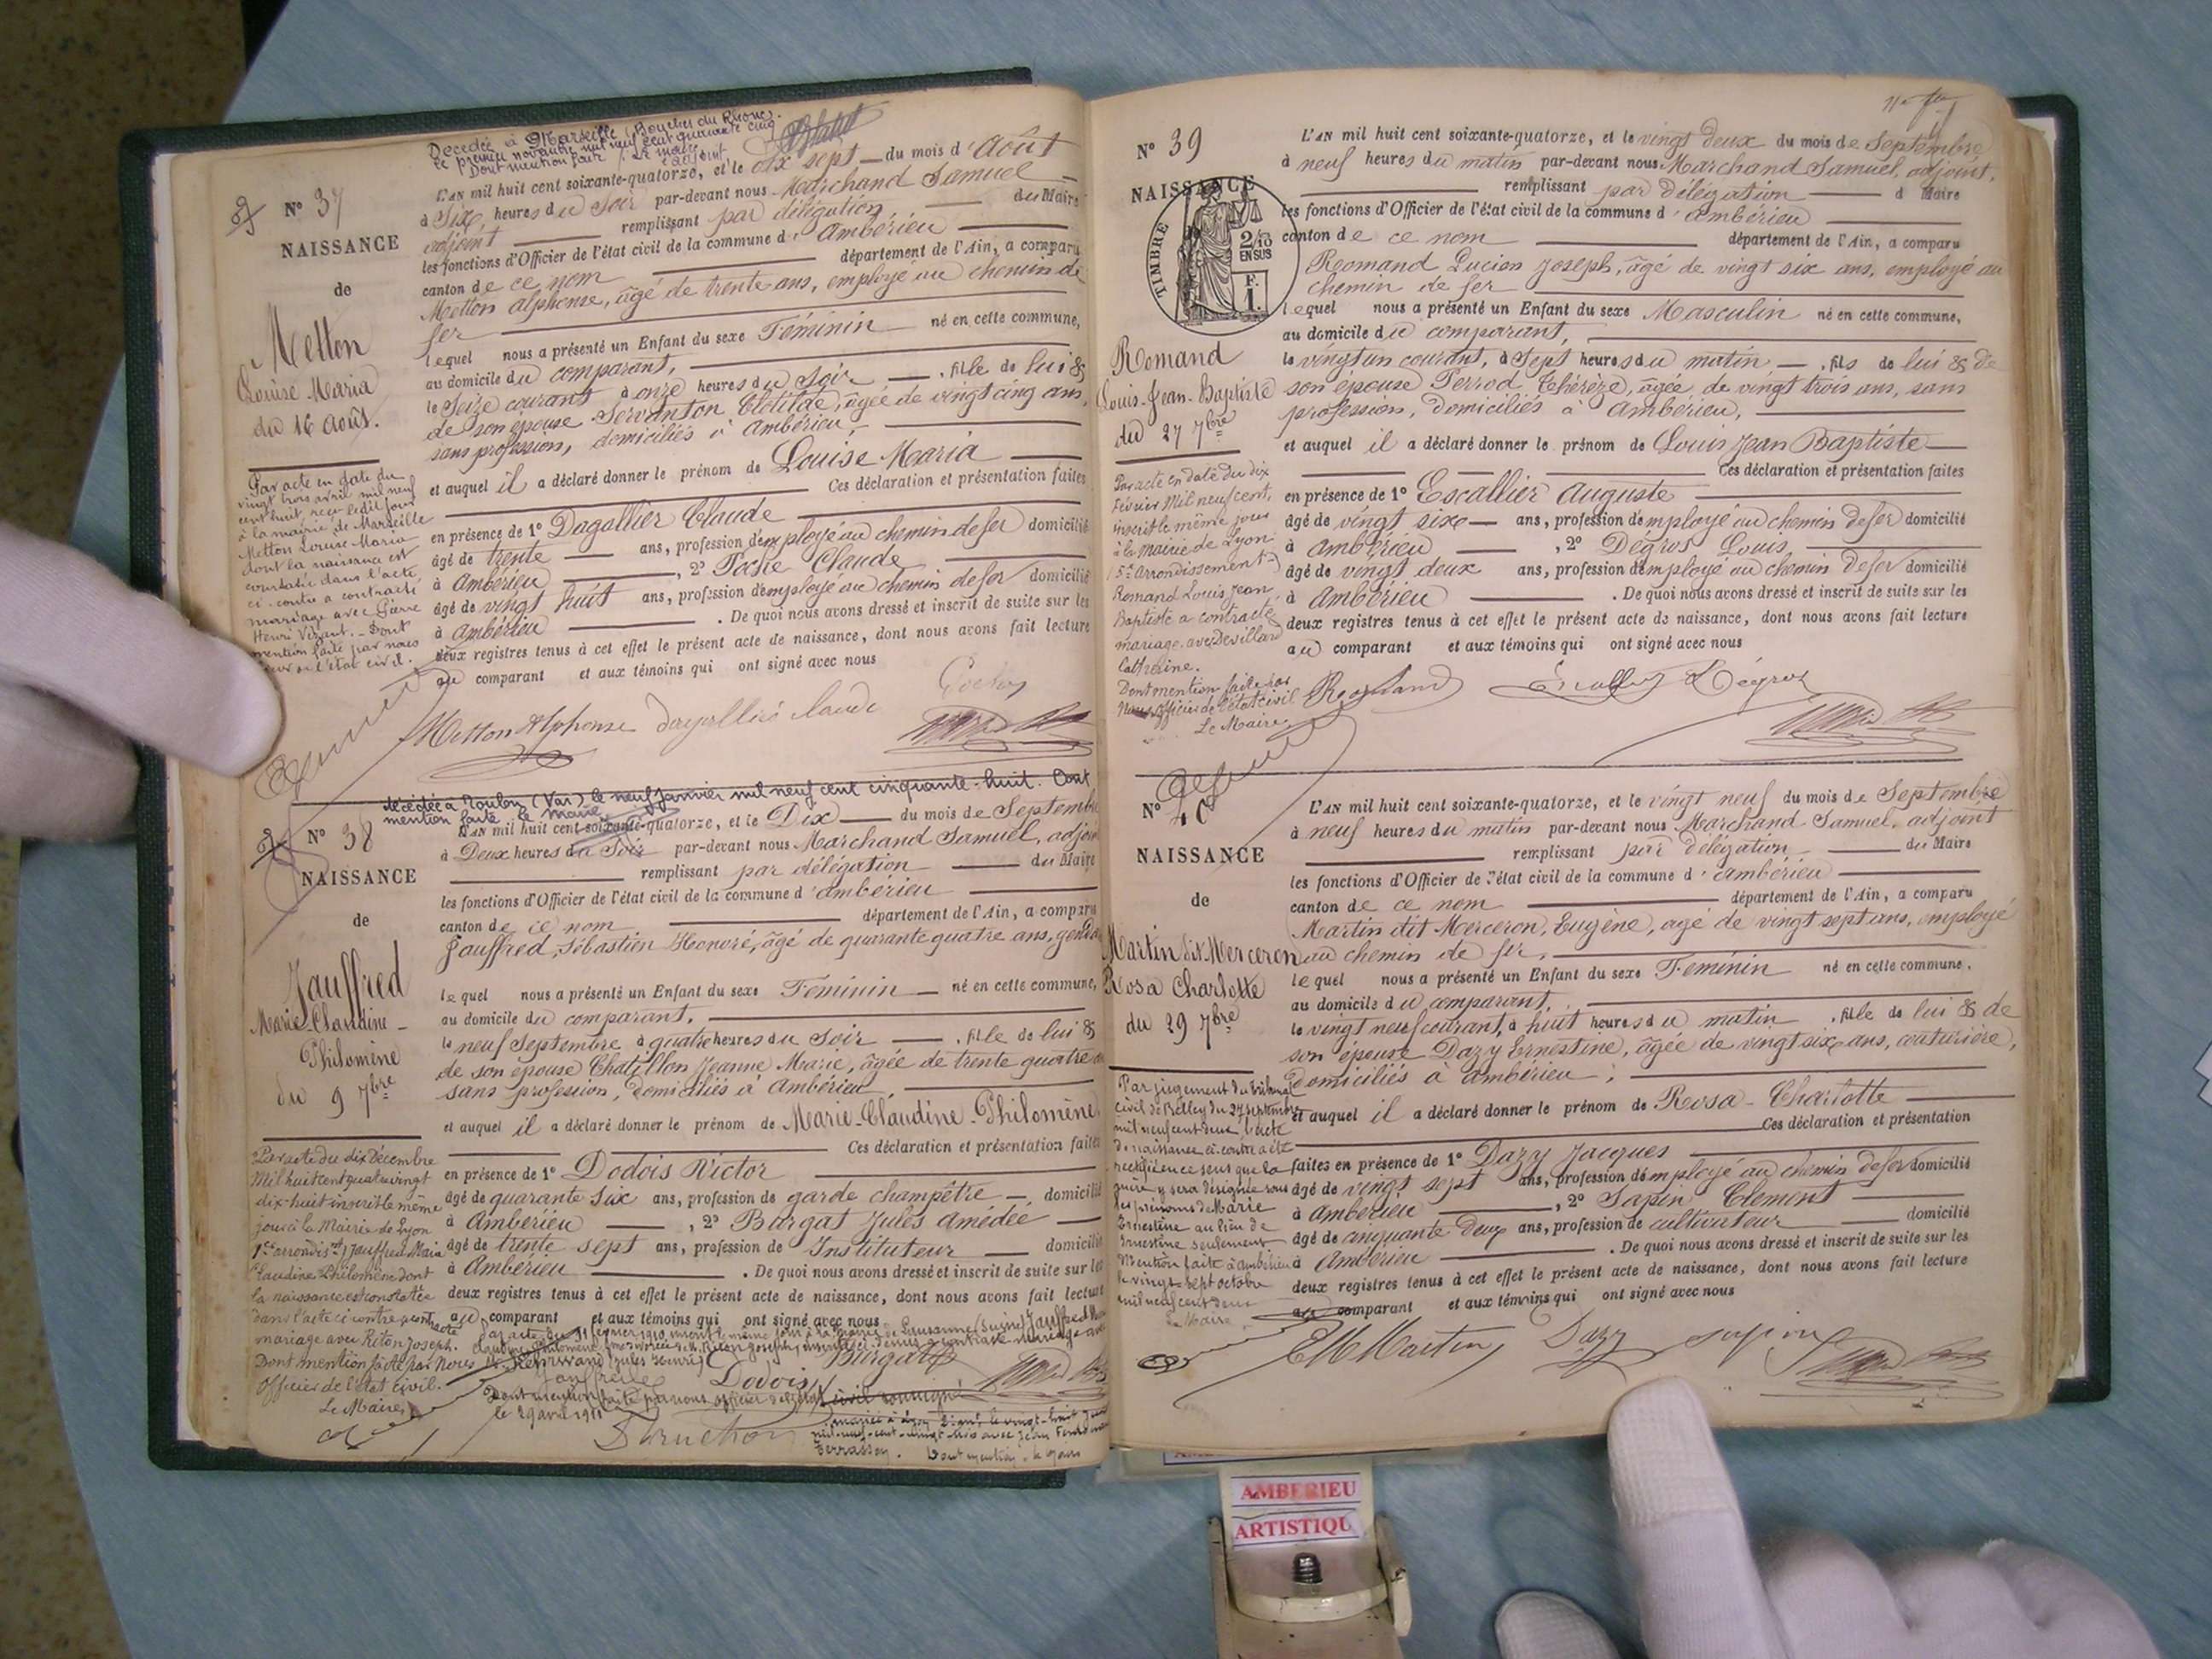 Decedée à Marseille (Bouches du Rhône)
le premier novembre mil neuf cent quarante cinq
Dont mention faite, Le maire
L'adjoint,
N° 37
NAISSANCE
de
Metton
Louise Maria
du 16 Août.
L'AN mil huit cent soixante-quatorze, et le dix sept du mois d'Août
à Six heures du Soir par-devant nous Marchand Samuel
adjoint remplissant par délégation du Maire
les fonctions d'Officier de l'état civil de la commune d'Ambérieu
canton de ce nom département de l'Ain, a comparu
Metton Alphonse, âgé de trente ans, employé au chemin de
fer
lequel nous a présenté un Enfant du sexe Féminin né en cette commune,
au domicile du comparant,
le Seize courant à onze heures du Soir, fille de lui &
de son épouse Servanton Clotilde, âgée de vingt cinq ans,
sans profession, domiciliés à Ambérieu,
et auquel il a déclaré donner le prénom de Louise Maria
Ces déclaration et présentation faites
en présence de 1° Dagallier Claude
âgé de trente ans, profession d'employé au chemin de fer domicilié
à Ambérieu, 2° Claude
âgé de vingt huit ans, profession d'employé au chemin de fer domicilié
à Ambérieu. De quoi nous avons dressé et inscrit de suite sur les
deux registres tenus à cet effet le présent acte de naissance, dont nous avons fait lecture
au comparant et aux témoins qui ont signé avec nous
Metton Alphonse Dagallier Claude
Par acte en date du
vingt trois avril mil neuf
cent huit, reçu ledit jour
à la mairie de Marseille
Metton Louise Maria
dont la naissance est
constatée dans l'acte
ci-contre a contracté
mariage avec Pierre
Henri Vizant. Dont
mention faite par nous
officier de l'état civil.
décédée à Toulon (Var) le neuf Janvier mil neuf cent cinquante-huit. Dont
mention faite le maire
N° 38
NAISSANCE
de
Jauffred
Marie-Claudine-
Philomène
du 9 7bre
L'AN mil huit cent soixante-quatorze, et le Dix du mois de Septembre
à Deux heures du Soir par-devant nous Marchand Samuel, adjoint
remplissant par délégation du Maire
les fonctions d'Officier de l'état civil de la commune d'Ambérieu
canton de ce nom département de l'Ain, a comparu
Jauffred, Sébastien Honoré, âgé de quarante quatre ans,
lequel nous a présenté un Enfant du sexe Féminin né en cette commune,
au domicile du comparant,
le neuf Septembre à quatre heures du Soir, fille de lui &
de son épouse Chatillon Jeanne Marie, âgée de trente quatre
sans profession, domiciliés à Ambérieu,
et auquel il a déclaré donner le prénom de Marie-Claudine-Philomène
Ces déclaration et présentation faites
en présence de 1° Dodois Victor
âgé de quarante Six ans, profession de garde champêtre, domicilié
à Ambérieu, 2° Burgat Jules Amédée
âgé de trente sept ans, profession de Instituteur domicilié
à Ambérieu. De quoi nous avons dressé et inscrit de suite sur les
deux registres tenus à cet effet le présent acte de naissance, dont nous avons fait lecture
au comparant et aux témoins qui ont signé avec nous
Dodois Burgat
Dont mention faite par nous officier de l'état civil soussigné
le 29 avril 1911
Par acte du dix Décembre
Mil huit cent quatre vingt
dix-huit inscrit le même
jour à la Mairie de Lyon
1er arrondist Jauffred Marie
Claudine Philomène dont
la naissance est constatée
dans l'acte ci contre a contracté
mariage avec Réton Joseph.
Dont mention faite par Nous
Officier de l'état civil.
Le Maire,
N° 39
NAISSANCE
TIMBRE
2/10
EN SUS
F.
1.
Romand
Louis-Jean-Baptiste
du 27 7bre
L'AN mil huit cent soixante-quatorze, et le vingt deux du mois de Septembre
à neuf heures du matin par-devant nous Marchand Samuel, adjoint,
remplissant par délégation d Maire
les fonctions d'Officier de l'état civil de la commune d'Ambérieu
canton de ce nom département de l'Ain, a comparu
Romand Lucien Joseph, âgé de vingt six ans, employé au
chemin de fer
lequel nous a présenté un Enfant du sexe Masculin né en cette commune,
au domicile du comparant,
le vingt un courant, à Sept heures du matin, fils de lui & de
son épouse Perrod Thérèze, âgée de vingt trois ans, sans
profession, domiciliés à Ambérieu,
et auquel il a déclaré donner le prénom de Louis Jean Baptiste
Ces déclaration et présentation faites
en présence de 1° Escallier Auguste
âgé de vingt six ans, profession d'employé au chemin de fer domicilié
à Ambérieu, 2° Dégros Louis
âgé de vingt deux ans, profession d'employé au chemin de fer domicilié
à Ambérieu. De quoi nous avons dressé et inscrit de suite sur les
deux registres tenus à cet effet le présent acte de naissance, dont nous avons fait lecture
au comparant et aux témoins qui ont signé avec nous
Romand Escallier Dégros
Par acte en date du dix
Février Mil neuf cent,
inscrit le même jour
à la Mairie de Lyon
(5e Arrondissement)
Romand Louis Jean
Baptiste a contracté
mariage avec Devillard
Catherine.
Dont mention faite par
Nous Officier de l'état civil
Le Maire,
N° 40
NAISSANCE
de
Martin dit Merceron
Rosa Charlotte
du 29 7bre
L'AN mil huit cent soixante-quatorze, et le vingt neuf du mois de Septembre
à neuf heures du matin par-devant nous Marchand Samuel, adjoint
remplissant par délégation du Maire
les fonctions d'Officier de l'état civil de la commune d'Ambérieu
canton de ce nom département de l'Ain, a comparu
Martin dit Merceron, Eugène, âgé de vingt sept ans, employé
au chemin de fer,
lequel nous a présenté un Enfant du sexe Féminin né en cette commune,
au domicile du comparant,
le vingt neuf courant, à huit heures du matin, fille de lui & de
son épouse Dazy Ernestine, âgée de vingt six ans, couturière,
domiciliés à Ambérieu;
et auquel il a déclaré donner le prénom de Rosa-Charlotte
Ces déclaration et présentation
faites en présence de 1° Dazy Jacques
âgé de vingt sept ans, profession d'employé au chemin de fer domicilié
à Ambérieu, 2° Sapin Clément
âgé de cinquante deux ans, profession de cultivateur domicilié
à Ambérieu. De quoi nous avons dressé et inscrit de suite sur les
deux registres tenus à cet effet le présent acte de naissance, dont nous avons fait lecture
au comparant et aux témoins qui ont signé avec nous
Martin Dazy Sapin
Par jugement du tribunal
civil de Belley du 27 septembre
mil neuf cent deux, l'acte
de naissance ci-contre a été
rectifié en ce sens que la
mère y sera désignée sous
les prénoms de Marie
Ernestine au lieu de
Ernestine seulement
Mention faite à Ambérieu
le vingt-sept octobre
mil neuf cent deux
Le Maire,
AMBERIEU
ARTISTIQU